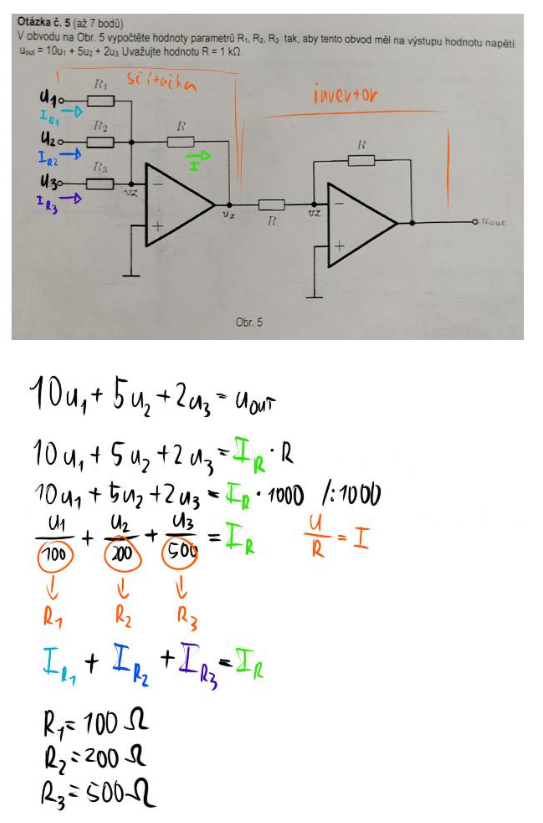 Otázka č. 5 (až 7 bodů)
V obvodu na Obr. 5 vypočtěte hodnoty parametrů R₁, R₂, R₃ tak, aby tento obvod měl na výstupu hodnotu napětí
uout = 10u₁ + 5u₂ + 2u₃ Uvažujte hodnotu R = 1 kΩ.
sčítačka
invertor
u₁ R₁
I_R1
u₂ R₂ R
I_R2 I
u₃ R₃
I_R3
vz
−
+
vx
R
vz
R
−
+
uout
Obr. 5
10u₁ + 5u₂ + 2u₃ = u_OUT
10u₁ + 5u₂ + 2u₃ = I_R · R
10u₁ + 5u₂ + 2u₃ = I_R · 1000 /:1000
u₁/100 + u₂/200 + u₃/500 = I_R U/R = I
↓ ↓ ↓
R₁ R₂ R₃
I_R1 + I_R2 + I_R3 = I_R
R₁ = 100 Ω
R₂ = 200 Ω
R₃ = 500 Ω